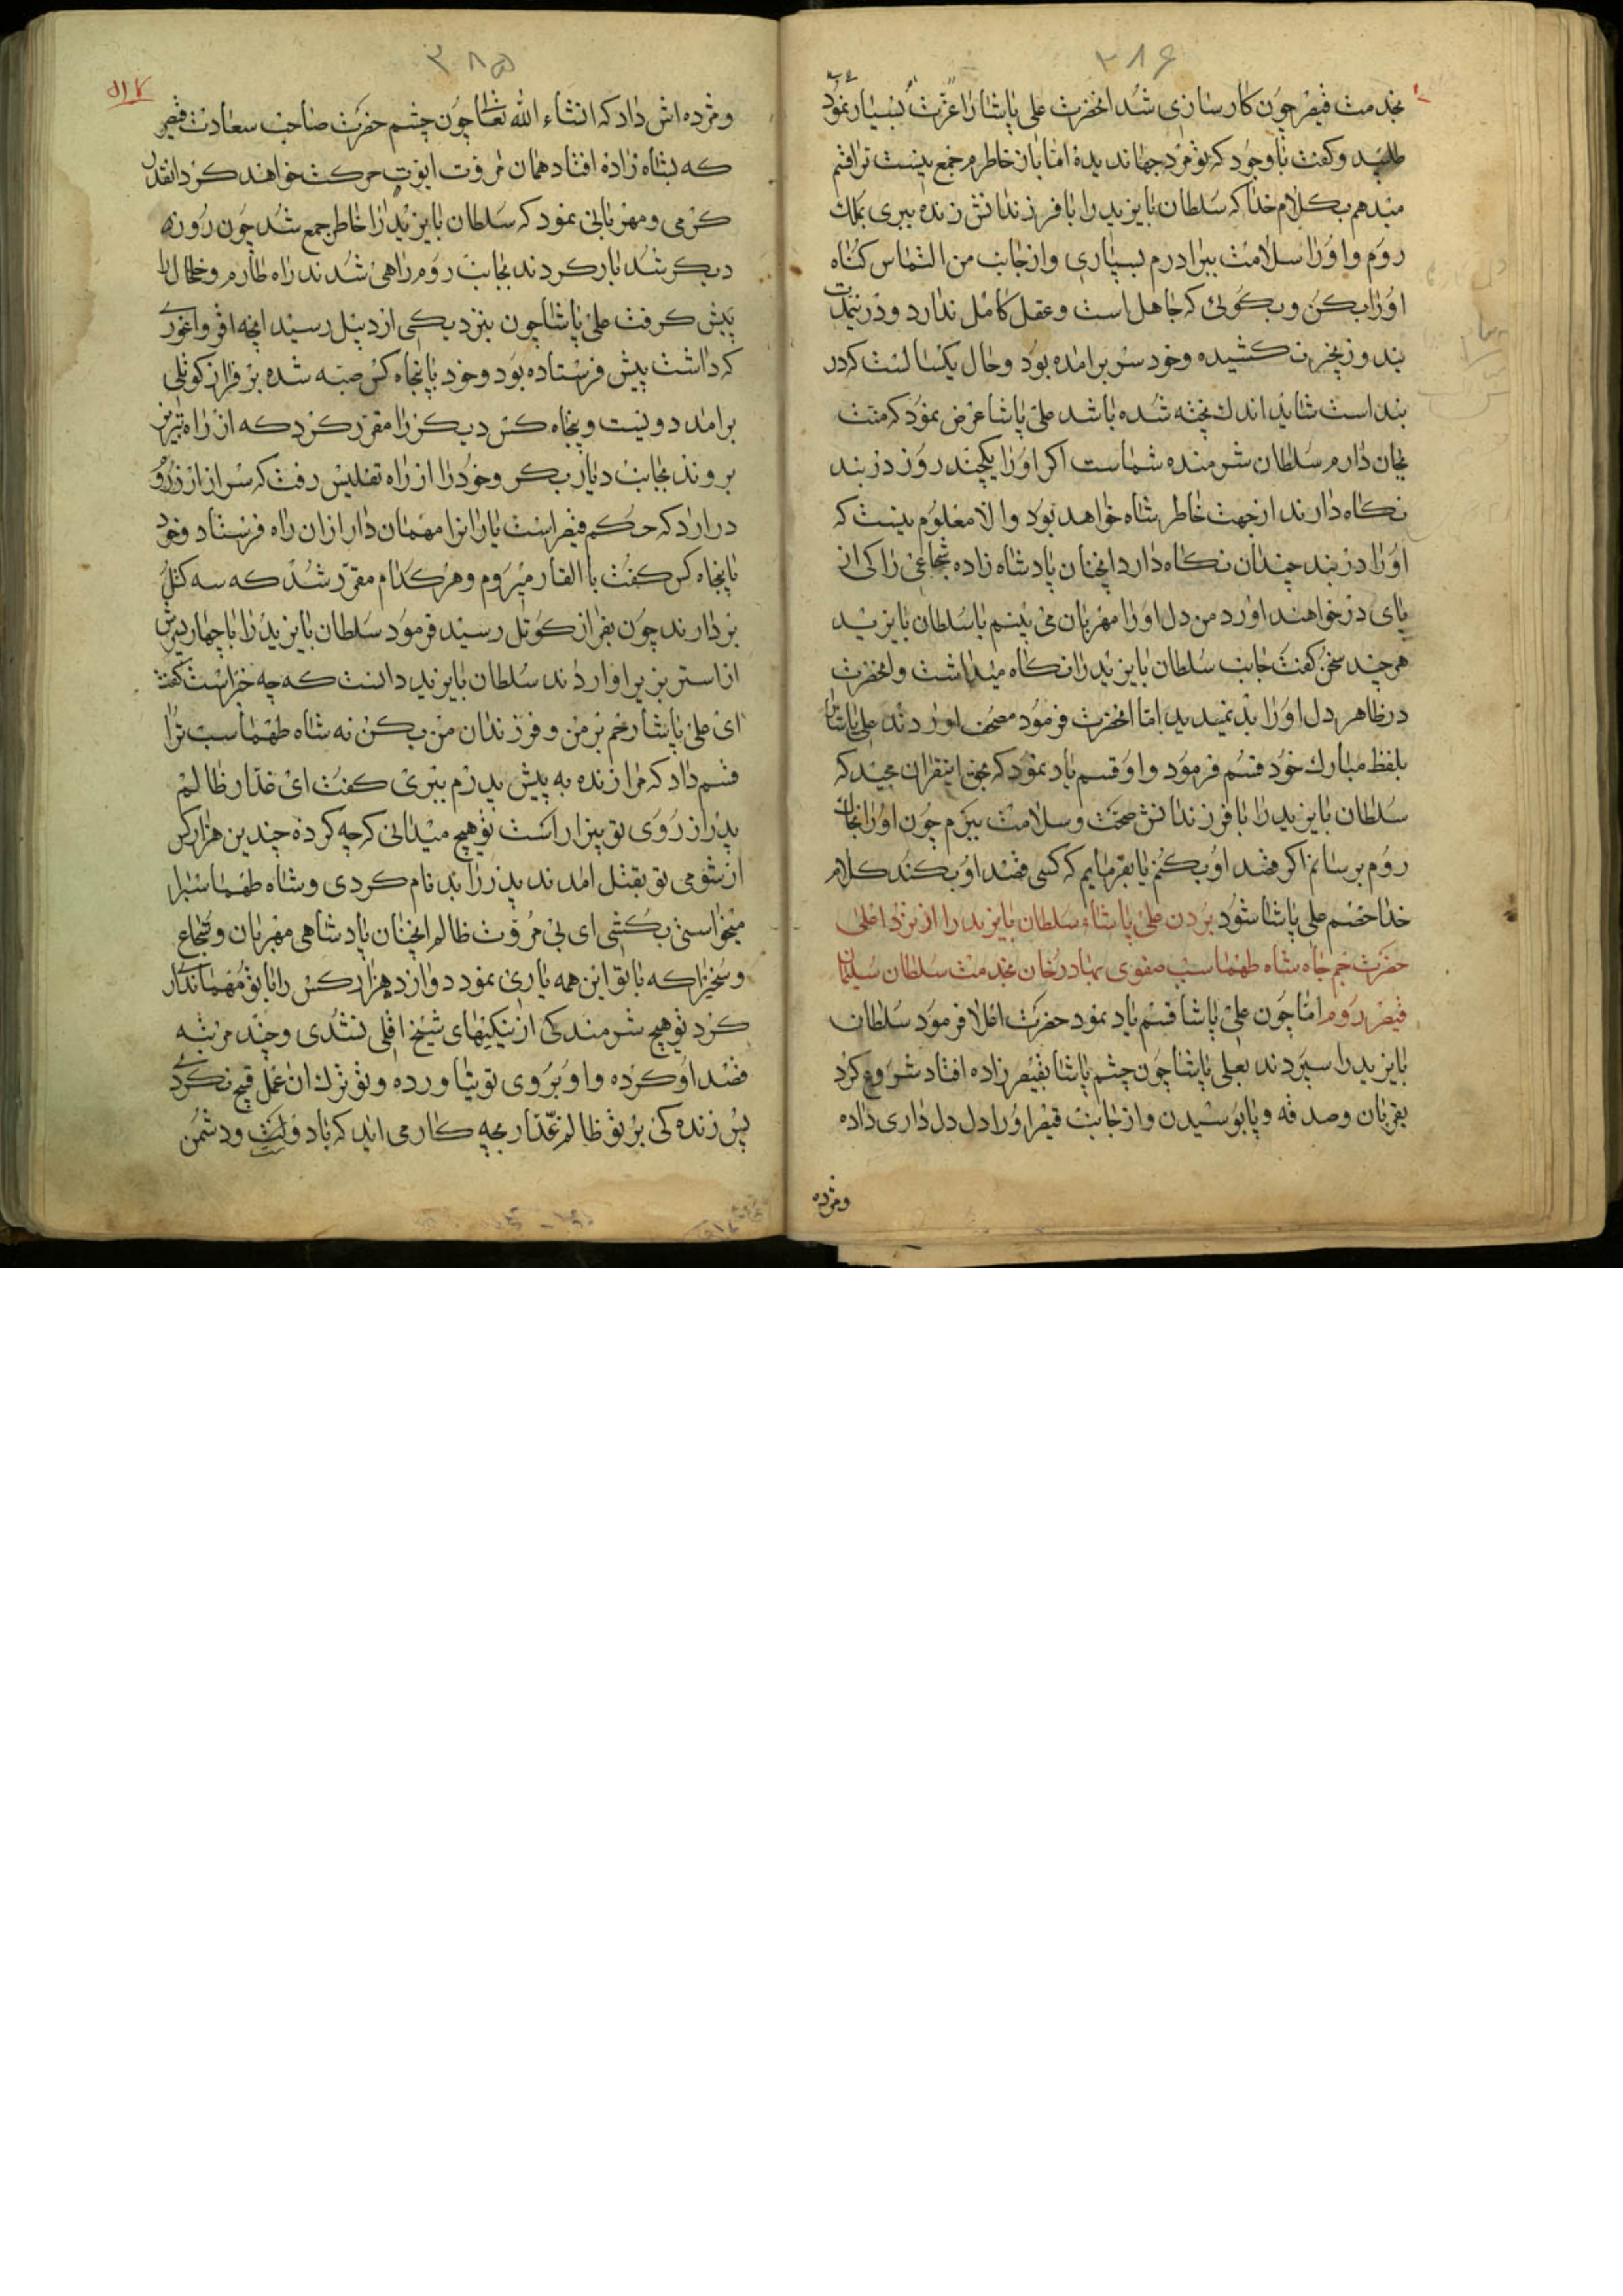 ۳۸۶
بخدمت قیصر چون کارسازی شد انحضرت علی پاشا را عزت بسیار نمود
طلبید و کفت با وجود که تو مرد جهاندیدۀ اما باز خاطرم جمع نیست ترا قسم
میدهم بکلام خدا که سلطان بایزید را با فرزندانش زنده ببری بملک
روم و او را سلامت ببرادرم بسپاری و از جانب من التماس کناه
او را بکن و بکوئی که جاهل است و عقل کامل ندارد و در نیمدت
بند و زنجیر نکشیده و خود سر برامده بود و حال یکسالست که در
بند است شاید اندک پخته شده باشد علی پاشا عرض نمود که منت
بجان دارم سلطان شرمنده شماست اکر او را یکچند روز در بند
نکاه دارند از جهت خاطر شاه خواهد بود والا معلوم نیست که
او را در بند چندان نکاه دارد انچنان پادشاه زاده شجاعی را کی از
پای در خواهند اورد من دل او را مهربان می بینم با سلطان بایزید
هر چند سخن کفت جانب سلطان بایزید را نکاه میداشت و انحضرت
در ظاهر دل او را بد نمیدید اما انحضرت فرمود مصحف اوردند علی پاشا را
بلفظ مبارک خود قسم فرمود و او قسم یاد نمود که بحق اینقران مجید که
سلطان بایزید را با فرزندانش صحت و سلامت ببرم چون او را بخاک
روم برسانم اکر قصد او بکنم یا بفرمایم که کسی قصد او بکند کلام
خدا خصم علی پاشا شود بردن علی پاشاء سلطان بایزید را از نزد اعلی
حضرت جم جاه شاه طهماسب صفوی بهادرخان بخدمت سلطان سلیمان
قیصر روم اما چون علی پاشا قسم یاد نمود حضرت اعلا فرمود سلطان
بایزید را سپردند بعلی پاشا چون چشم پاشا بقیصر زاده افتاد شروع کرد
بقربان و صدقه و پابوسیدن و از جانب قیصر او را دل دلداری داده
ومژده
۳۸۵
و مژده اش داد که انشاء الله تعالی چون چشم حضرت صاحب سعادت قیصر
که بشاه زاده افتاد همان مروت ابوت حرکت خواهند کرد انقدر
کرمی و مهربانی نمود که سلطان بایزید را خاطر جمع شد چون روز
دیکر شد بار کردند بجانب روم راهی شدند راه طارم و خلخال را
پیش کرفت علی پاشا چون بنزدیکی اردبیل رسید انچه اقر و اغور
که داشت پیش فرستاده بود و خود با پنجاه کس صبه شده بر فراز کوتلی
برامد دویست و پنجاه کس دیکر را مقرر کرد که از راه تبریز
بروند بجانب دیاربکر و خود را از راه تفلیس رفت که سر از ارزروم
در ارد که حکم قیصر است یاران را مهماندار از ان راه فرستاد و خود
با پنجاه کس کفت با القار میروم و هر کدام مقرر شد که سه کتل
بردارند چون بفراز کوتل رسید فرمود سلطان بایزید را با چهار پسرش
از استر بزیر اواردند سلطان بایزید دانست که چه خبر است کفت
ای علی پاشا رحم بر من و فرزندان من بکن نه شاه طهماسب ترا
قسم داد که مرا زنده به پیش پدرم ببری کفت ای غدار ظالم
پدر از روی تو بیزار است تو هیچ میدانی که چه کردۀ چندین هزار کس
از شومی تو بقتل امدند پدر را بدنام کردی و شاه طهماسب را
میخواستی بکشی ای بی مروت ظالم انچنان پادشاهی مهربان و شجاع
و سخی را که با تو این همه یاری نمود دوازده هزار کس را با تو مهماندار
کرد تو هیچ شرمندکی از نیکیهای شیخ اقلی نشدی و چند مرتبه
قصد او کرده و او بروی تو نیاورده و تو ترک ان عمل قبیح نکردی
پس زنده کی بر تو ظالم غدار بچه کار می اید که باد دولت و دشمن